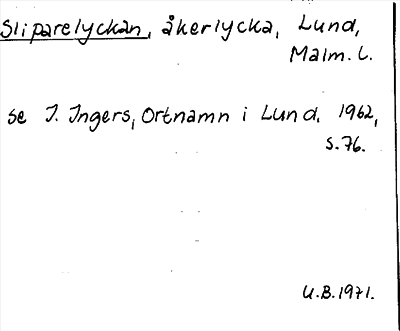 Sliparelyckan, åkerlycka, Lund,
Malm. L.
se I. Ingers, Ortnamn i Lund. 1962,
s. 76.
U.B. 1971.